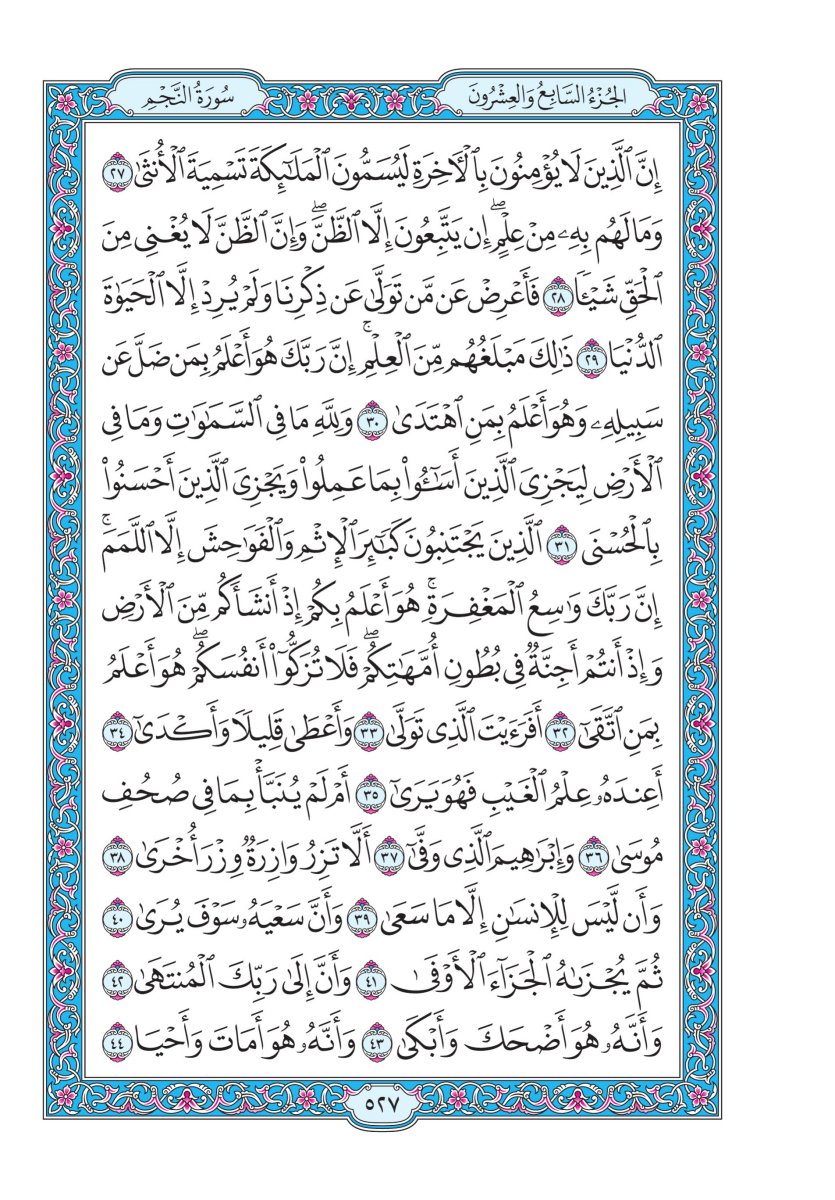 الجُزْءُ السَّابِعُ وَالعِشْرُونَ
سُورَةُ النَّجْمِ
إِنَّ ٱلَّذِينَ لَا يُؤْمِنُونَ بِٱلْأٓخِرَةِ لَيُسَمُّونَ ٱلْمَلَٰٓئِكَةَ تَسْمِيَةَ ٱلْأُنثَىٰ ٢٧
وَمَا لَهُم بِهِۦ مِنْ عِلْمٍۖ إِن يَتَّبِعُونَ إِلَّا ٱلظَّنَّۖ وَإِنَّ ٱلظَّنَّ لَا يُغْنِى مِنَ
ٱلْحَقِّ شَيْـًٔا ٢٨ فَأَعْرِضْ عَن مَّن تَوَلَّىٰ عَن ذِكْرِنَا وَلَمْ يُرِدْ إِلَّا ٱلْحَيَوٰةَ
ٱلدُّنْيَا ٢٩ ذَٰلِكَ مَبْلَغُهُم مِّنَ ٱلْعِلْمِۚ إِنَّ رَبَّكَ هُوَ أَعْلَمُ بِمَن ضَلَّ عَن
سَبِيلِهِۦ وَهُوَ أَعْلَمُ بِمَنِ ٱهْتَدَىٰ ٣٠ وَلِلَّهِ مَا فِى ٱلسَّمَٰوَٰتِ وَمَا فِى
ٱلْأَرْضِ لِيَجْزِىَ ٱلَّذِينَ أَسَٰٓـُٔوا۟ بِمَا عَمِلُوا۟ وَيَجْزِىَ ٱلَّذِينَ أَحْسَنُوا۟
بِٱلْحُسْنَى ٣١ ٱلَّذِينَ يَجْتَنِبُونَ كَبَٰٓئِرَ ٱلْإِثْمِ وَٱلْفَوَٰحِشَ إِلَّا ٱللَّمَمَۚ
إِنَّ رَبَّكَ وَٰسِعُ ٱلْمَغْفِرَةِۚ هُوَ أَعْلَمُ بِكُمْ إِذْ أَنشَأَكُم مِّنَ ٱلْأَرْضِ
وَإِذْ أَنتُمْ أَجِنَّةٌ فِى بُطُونِ أُمَّهَٰتِكُمْۖ فَلَا تُزَكُّوٓا۟ أَنفُسَكُمْۖ هُوَ أَعْلَمُ
بِمَنِ ٱتَّقَىٰٓ ٣٢ أَفَرَءَيْتَ ٱلَّذِى تَوَلَّىٰ ٣٣ وَأَعْطَىٰ قَلِيلًا وَأَكْدَىٰٓ ٣٤
أَعِندَهُۥ عِلْمُ ٱلْغَيْبِ فَهُوَ يَرَىٰٓ ٣٥ أَمْ لَمْ يُنَبَّأْ بِمَا فِى صُحُفِ
مُوسَىٰ ٣٦ وَإِبْرَٰهِيمَ ٱلَّذِى وَفَّىٰٓ ٣٧ أَلَّا تَزِرُ وَازِرَةٌ وِزْرَ أُخْرَىٰ ٣٨
وَأَن لَّيْسَ لِلْإِنسَٰنِ إِلَّا مَا سَعَىٰ ٣٩ وَأَنَّ سَعْيَهُۥ سَوْفَ يُرَىٰ ٤٠
ثُمَّ يُجْزَىٰهُ ٱلْجَزَآءَ ٱلْأَوْفَىٰ ٤١ وَأَنَّ إِلَىٰ رَبِّكَ ٱلْمُنتَهَىٰ ٤٢
وَأَنَّهُۥ هُوَ أَضْحَكَ وَأَبْكَىٰ ٤٣ وَأَنَّهُۥ هُوَ أَمَاتَ وَأَحْيَا ٤٤
٥٢٧